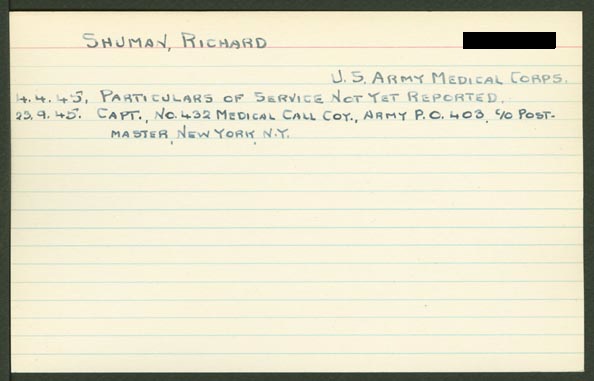 SHUMAN, RICHARD
U.S. ARMY MEDICAL CORPS.
4.4.45. PARTICULARS OF SERVICE NOT YET REPORTED.
23.9.45. CAPT., NO. 432 MEDICAL CALL COY., ARMY P.O. 403, C/O POST-
MASTER, NEW YORK, N.Y.